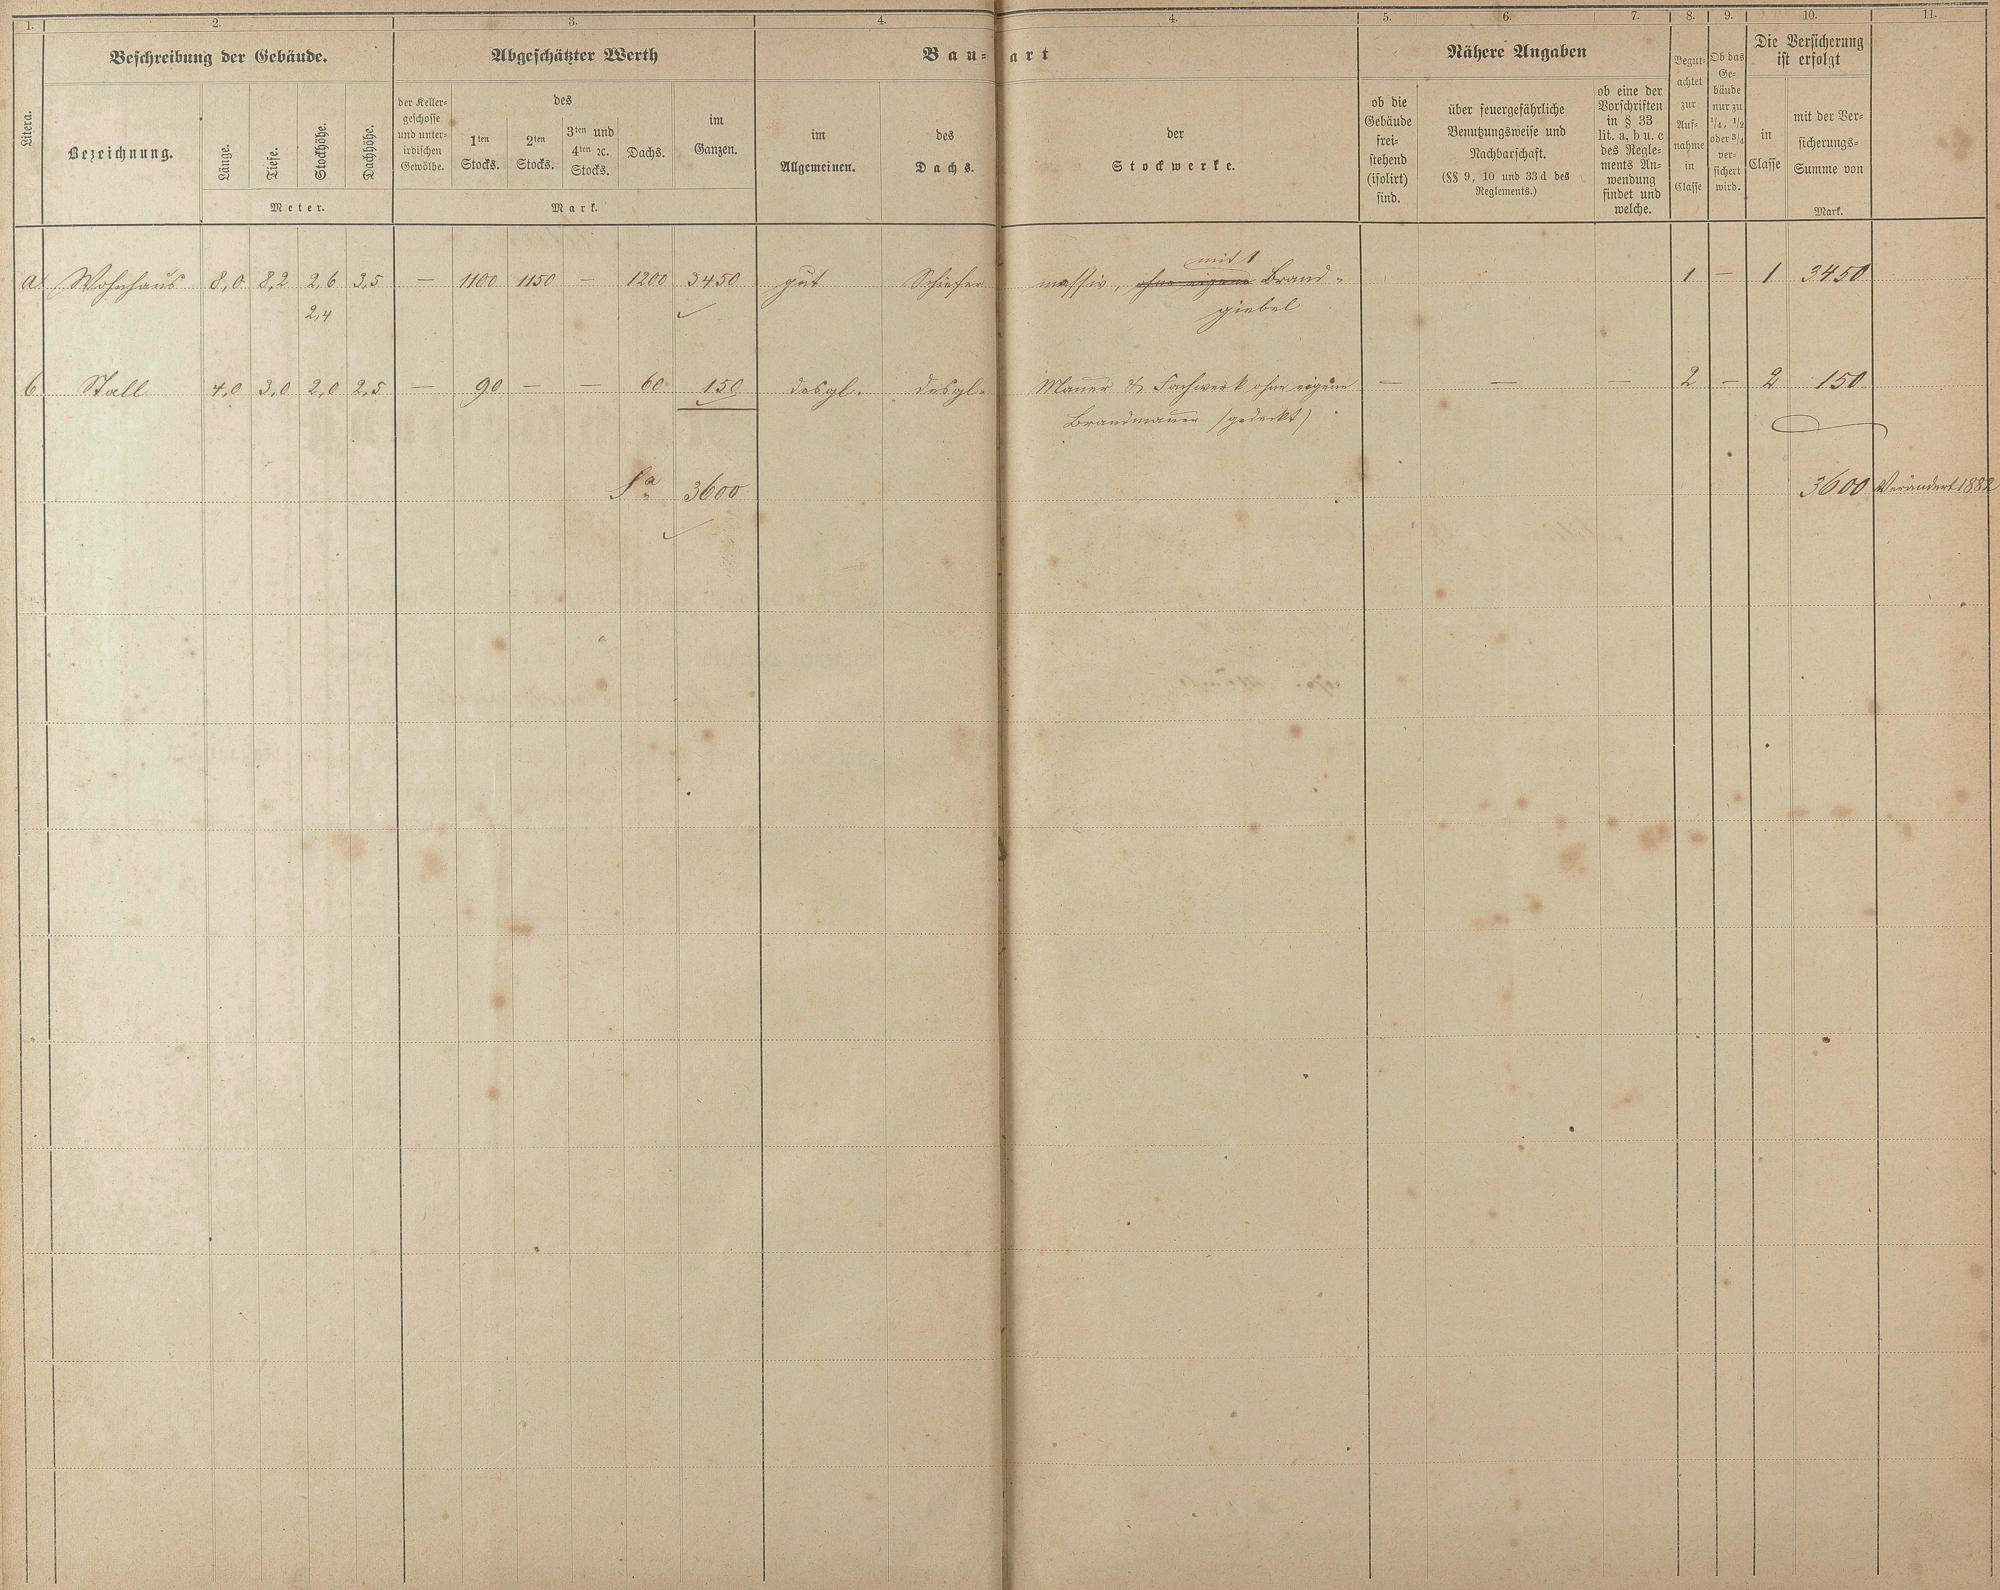 1. 2. 3. 4. 4. 5. 6. 7. 8. 9. 10. 11.
Litera.
Beschreibung der Gebäude.
Bezeichnung.
Länge.
Tiefe.
Stockhöhe.
Dachhöhe.
Meter.
Abgeschätzter Werth
der Keller-
geschosse
und unter-
irdischen
Gewölbe.
des
1ten
Stocks.
2ten
Stocks.
3ten und
4ten ꝛc.
Stocks.
Dachs.
im
Ganzen.
Mark.
Bau-art
im
Allgemeinen.
des
Dachs.
der
Stockwerke.
Nähere Angaben
ob die
Gebäude
frei-
stehend
(isolirt)
sind.
über feuergefährliche
Benutzungsweise und
Nachbarschaft.
(§§ 9, 10 und 33 d des
Reglements.)
ob eine der
Vorschriften
in § 33
lit. a, b u. c
des Regle-
ments An-
wendung
findet und
welche.
Begut-
achtet
zur
Auf-
nahme
in
Classe
Ob das
Ge-
bäude
nur zu
1/4, 1/2
oder 3/4
ver-
sichert
wird.
Die Versicherung
ist erfolgt
in
Classe
mit der Ver-
sicherungs-
Summe von
Mark.
mit 1
a. Wohnhaus 8,0 8,2 2,6 3,5 — 1100 1150 — 1200 3450 gut Schiefer massiv, ohne eigene Brand- 1 — 1 3450
2,4 giebel
b Stall 4,0 3,0 2,0 2,5 — 90 — — 60 150 desgl. desgl. Mauer & Fachwerk ohne eigene — — — 2 — 2 150
Brandmauer (gedeckt)
Sa 3600 3600 Verändert 1882